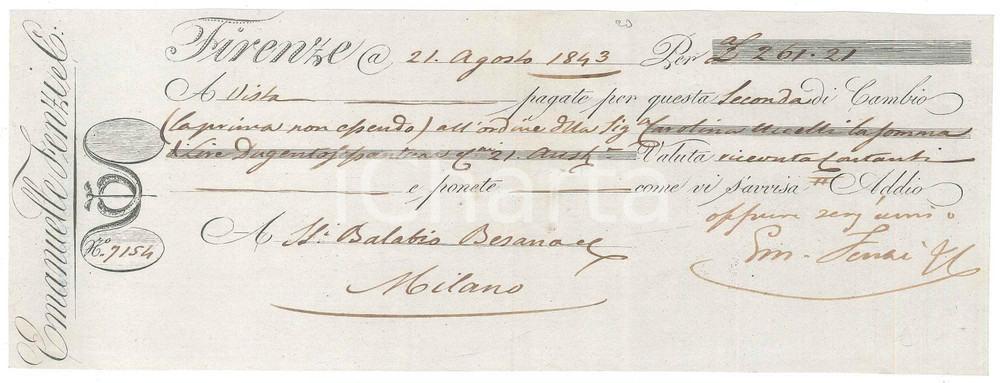 20
Firenze @ 21. Agosto 1843 Per £ 261.21
A Vista pagate per questa Seconda di Cambio
(la prima non essendo) all'ordine della Sig.ra Carolina Ucelli la somma
di Lire Dugento sessantuna 21. Aust.e Valuta ricevuta Contanti
e ponete come vi s'avvisa Addio
oppure senz'avviso
A SS.i Balabio Besana e C.
Milano
Em. Fenzi e C
Emanuelle Fenzi e C:
N.o 7154
iCharta